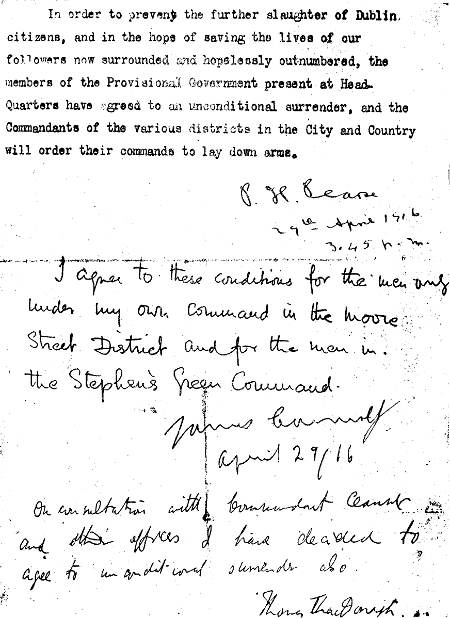 In order to prevent the further slaughter of Dublin
citizens, and in the hope of saving the lives of our
followers now surrounded and hopelessly outnumbered, the
members of the Provisional Government present at Head-
Quarters have agreed to an unconditional surrender, and the
Commandants of the various districts in the City and Country
will order their commands to lay down arms.
P. H. Pearse
29th April 1916
3.45 p.m.
I agree to these conditions for the men only
under my own Command in the Moore
Street District and for the men in
the Stephen's Green Command.
James Connolly
April 29/16
On consultation with Commandant Ceannt
and other officers I have decided to
agree to unconditional surrender also.
Thomas MacDonagh